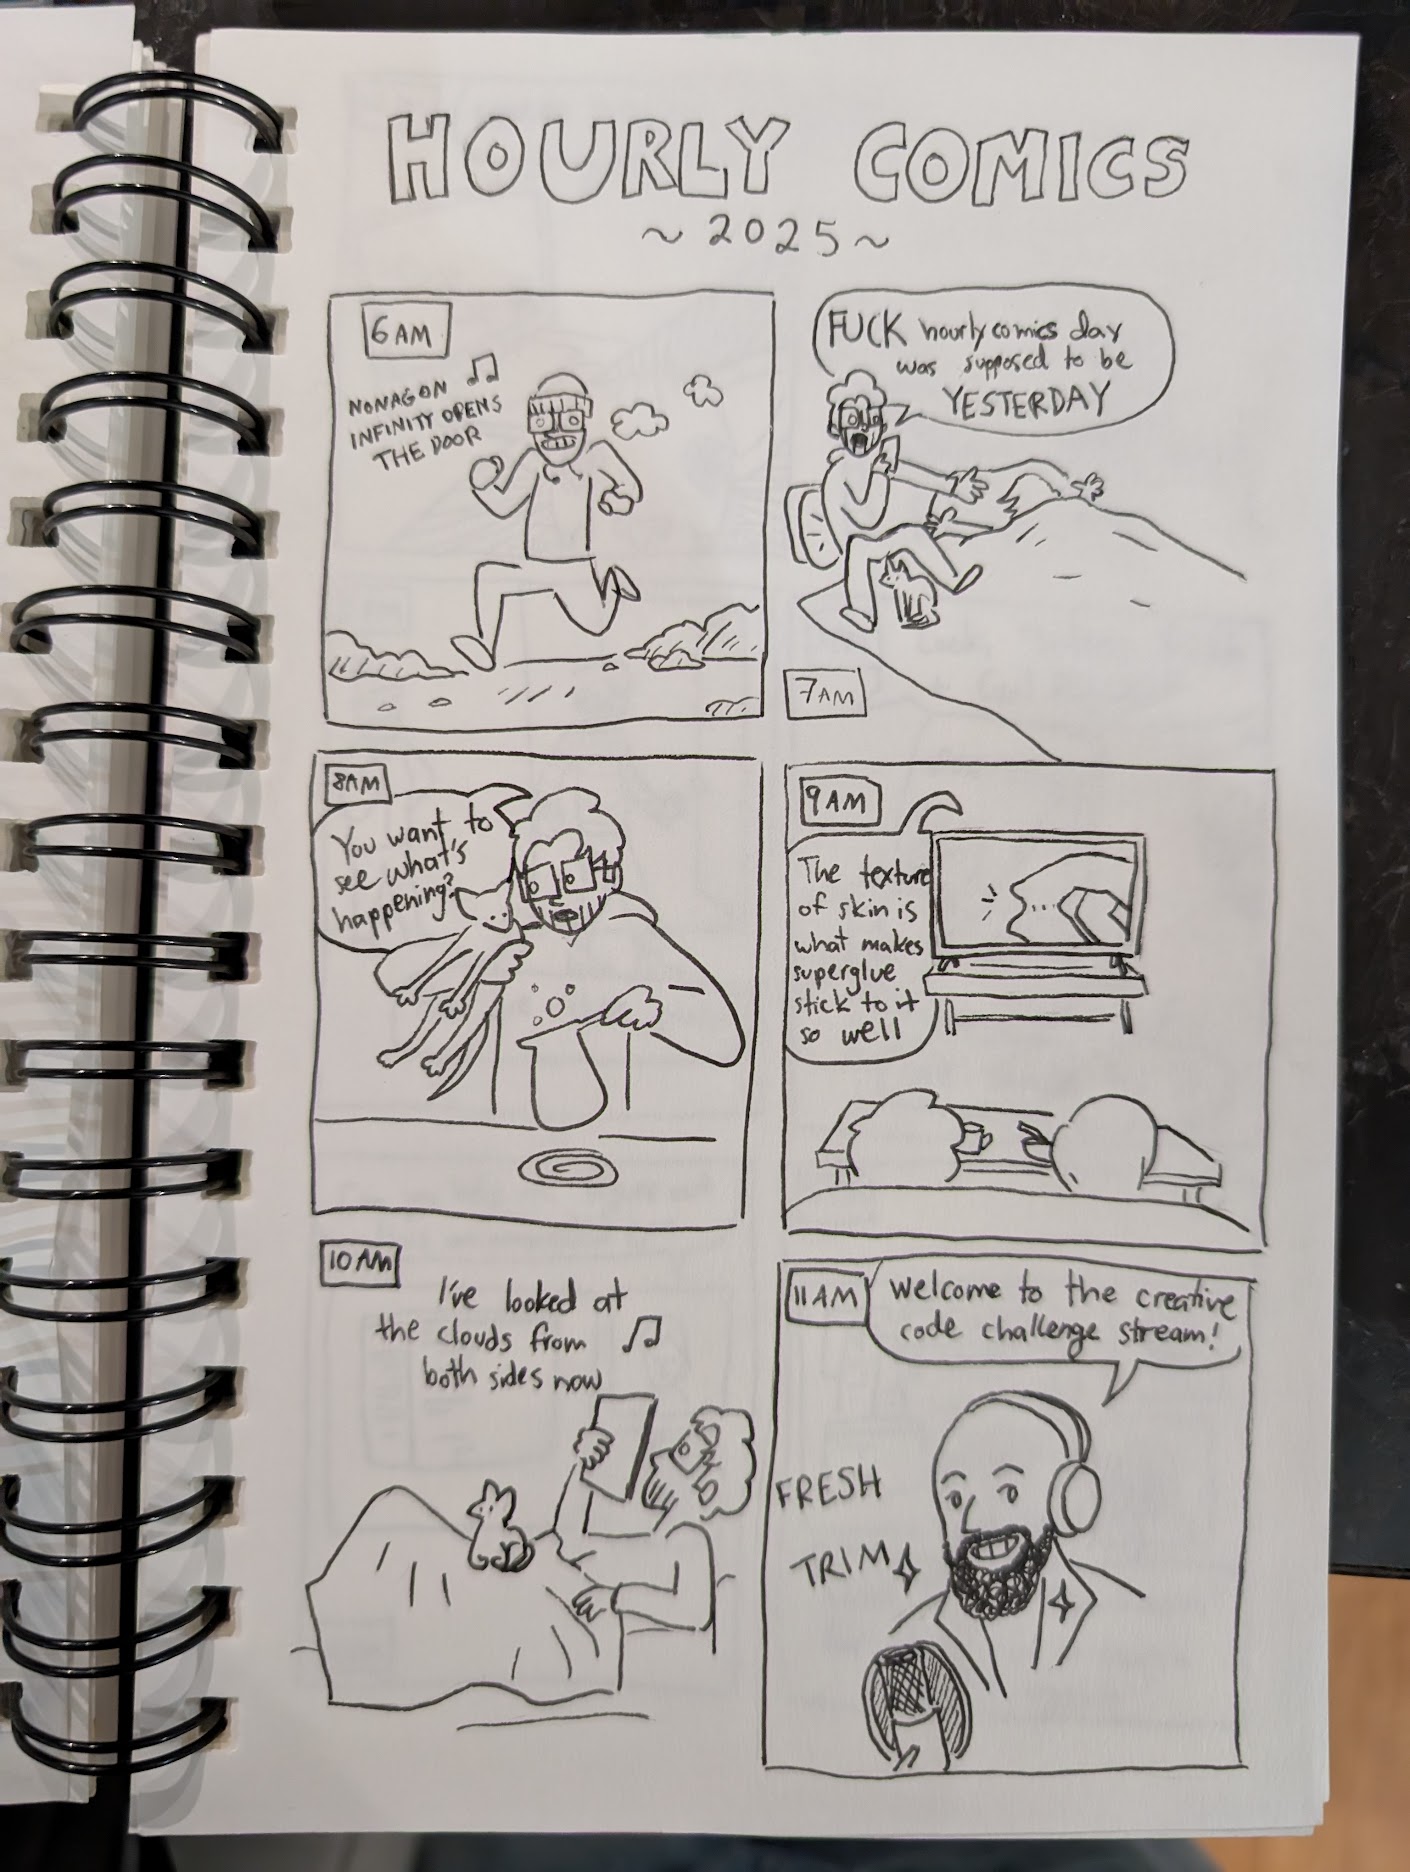 HOURLY COMICS
~ 2025 ~
6 AM
NONAGON
INFINITY OPENS
THE DOOR
FUCK hourly comics day
was supposed to be
YESTERDAY
7AM
8AM
You want to
see what's
happening?
9 AM
The texture
of skin is
what makes
superglue
stick to it
so well
10 AM
I've looked at
the clouds from
both sides now
11 AM
Welcome to the creative
code challenge stream!
FRESH
TRIM